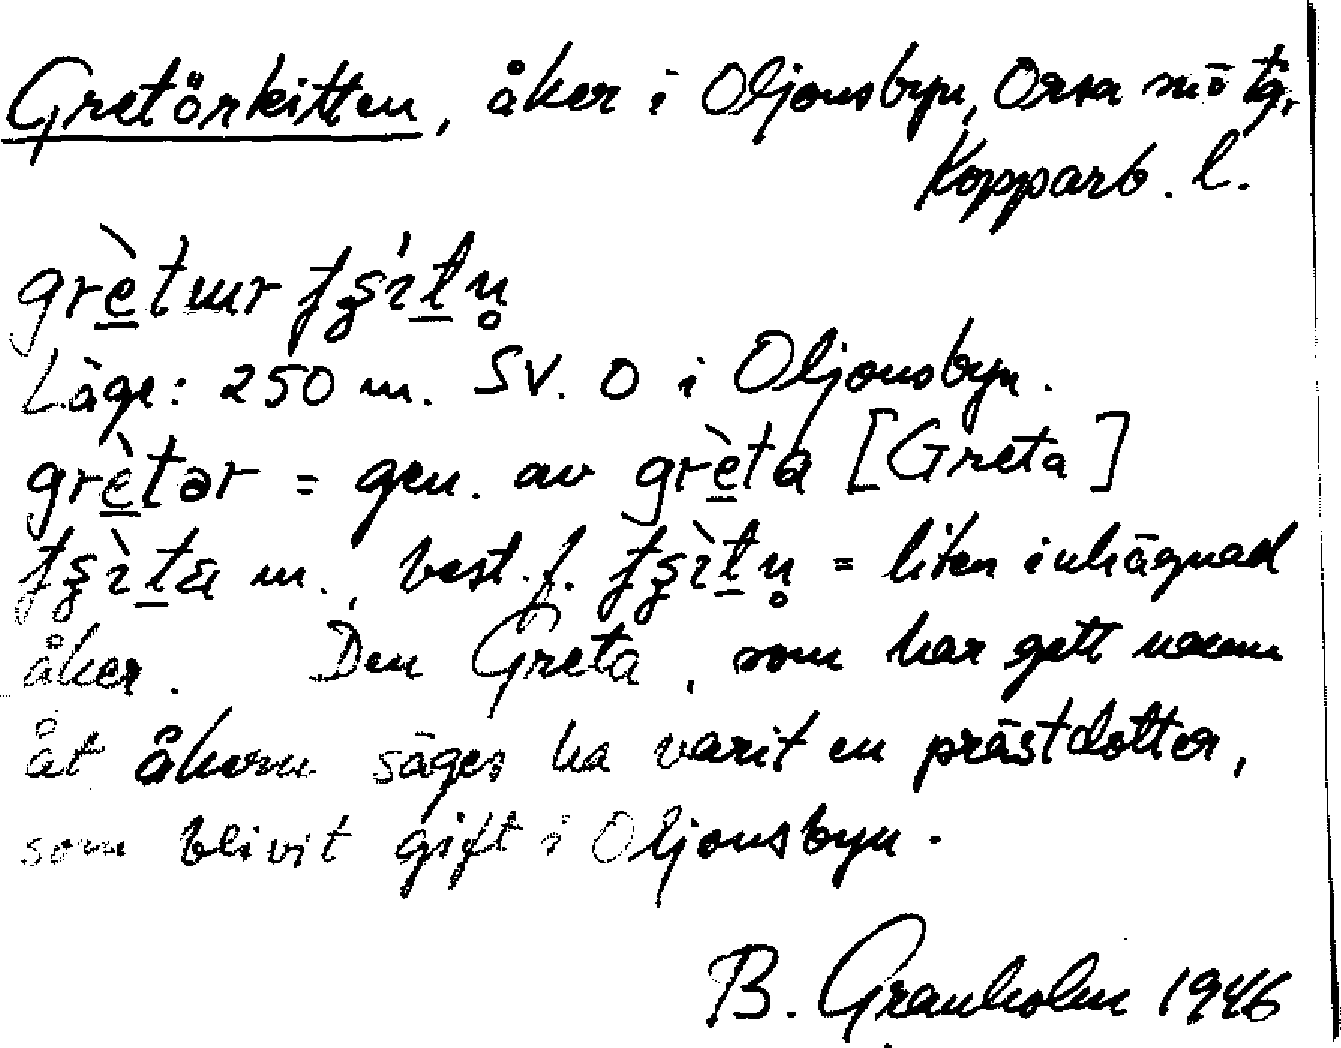 Gretörkitten, åker i Oljonsbyn, Orsa sn o tg,
Kopparb. l.
Läge: 250 m. SV. O i Oljonsbyn.
grètər = gen. av grèta [Greta]
m., best. f. = liten inhägnad
åker. Den Greta, som har gett namn
åt åkern säges ha varit en prästdotter,
som blivit gift i Oljonsbyn.
B. Granholm 1946